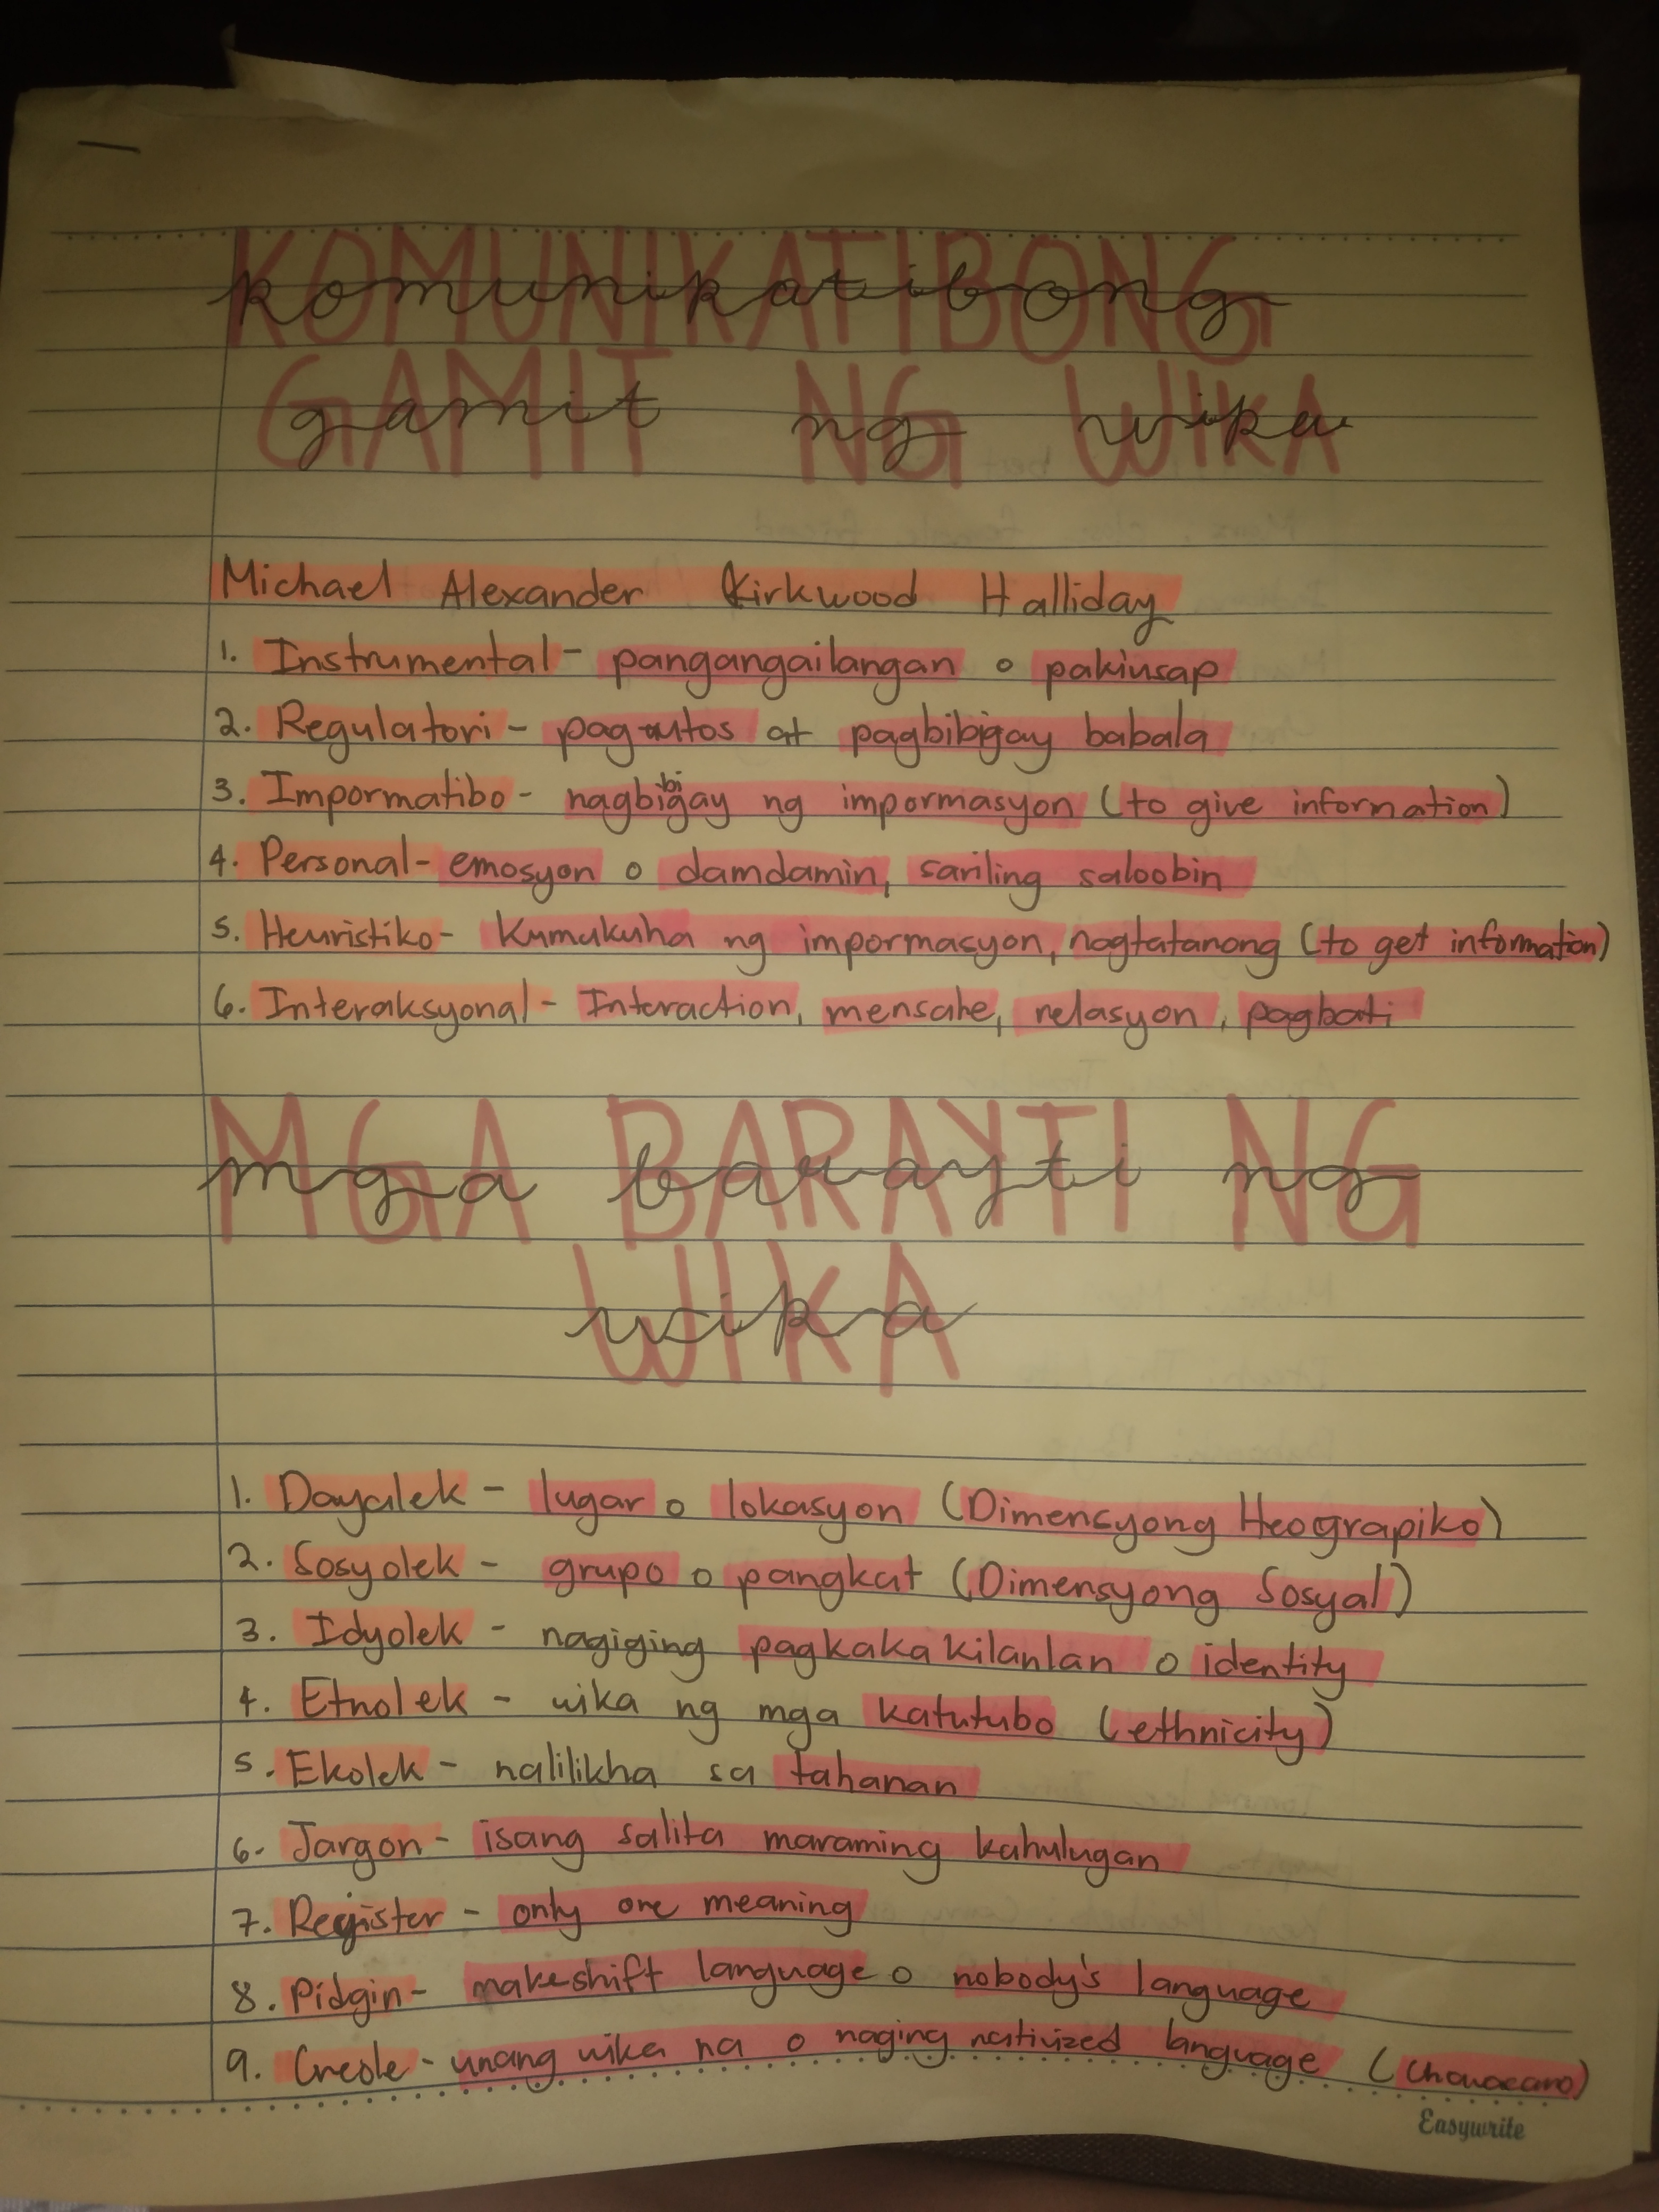 KOMUNIKATIBONG
komunikatibong
GAMIT NG WIKA
gamit ng wika
Michael Alexander Kirkwood Halliday
1. Instrumental - pangangailangan o pakiusap
2. Regulatori - pag-utos at pagbibigay babala
3. Impormatibo - nagbibigay ng impormasyon (to give information)
4. Personal - emosyon o damdamin, sariling saloobin
5. Heuristiko - Kumukuha ng impormasyon, nagtatanong (to get information)
6. Interaksyonal - Interaction, mensahe, relasyon, pagbati
MGA BARAYTI NG
mga barayti ng
WIKA
wika
1. Dayalek - lugar o lokasyon (Dimensyong Heograpiko)
2. Sosyolek - grupo o pangkat (Dimensyong Sosyal)
3. Idyolek - nagiging pagkakakilanlan o identity
4. Etnolek - wika ng mga katutubo (ethnicity)
5. Ekolek - nalilikha sa tahanan
6. Jargon - isang salita maraming kahulugan
7. Register - only one meaning
8. Pidgin - makeshift language o nobody's language
9. Creole - unang wika na o naging nativized language (Chavacano)
Easywrite